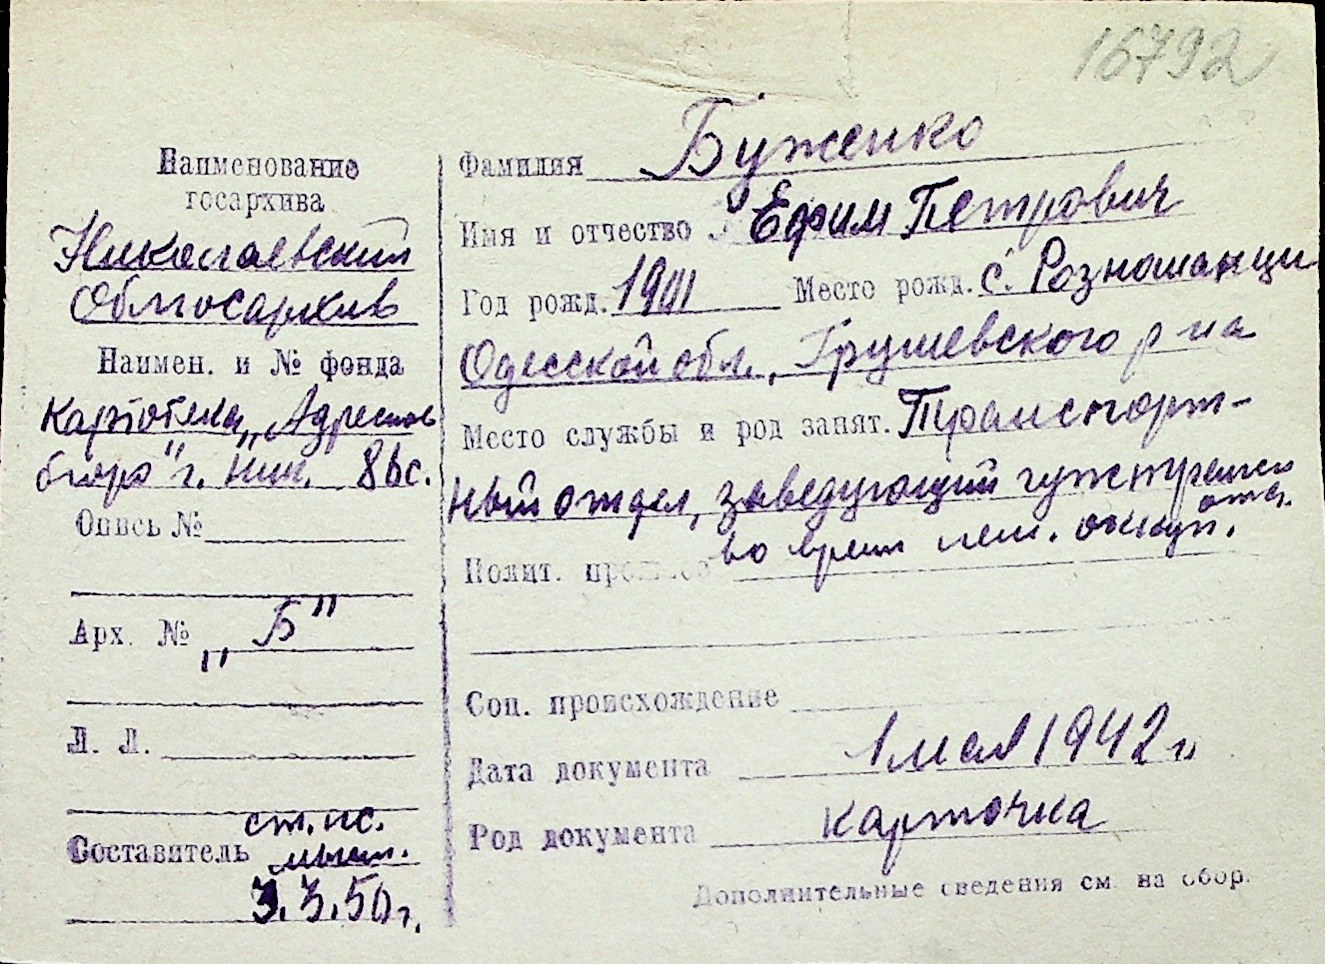 16792
Наименование
госархива
Николаевский
Облгосархив
Наимен. и № фонда
Картотека „Адресное
бюро" г. Ник. 86с.
Опись №
Арх. № „Б"
Л. Л.
ст. ис.
Составитель
3.3.50 г.
Фамилия Буженко
Имя и отчество Ефим Петрович
Год рожд. 1901 Место рожд. с. Розношанци
Одесской обл., Грушевского р-на
Место службы и род занят. Транспорт-
ный отдел, заведующий
во время нем. оккуп.
Полит. прошлое
Соц. происхождение
Дата документа 1 мая 1942 г.
Род документа карточка
Дополнительные сведения см на обор.